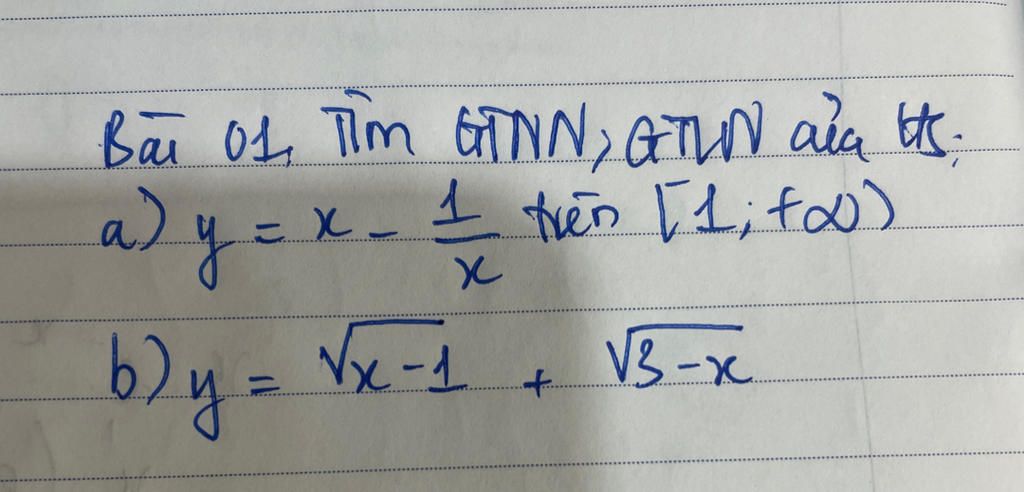 Bài 01, Tìm GTNN, GTLN của hs:
a) y = x - 1/x trên [1; +∞)
b) y = √x-1 + √3-x